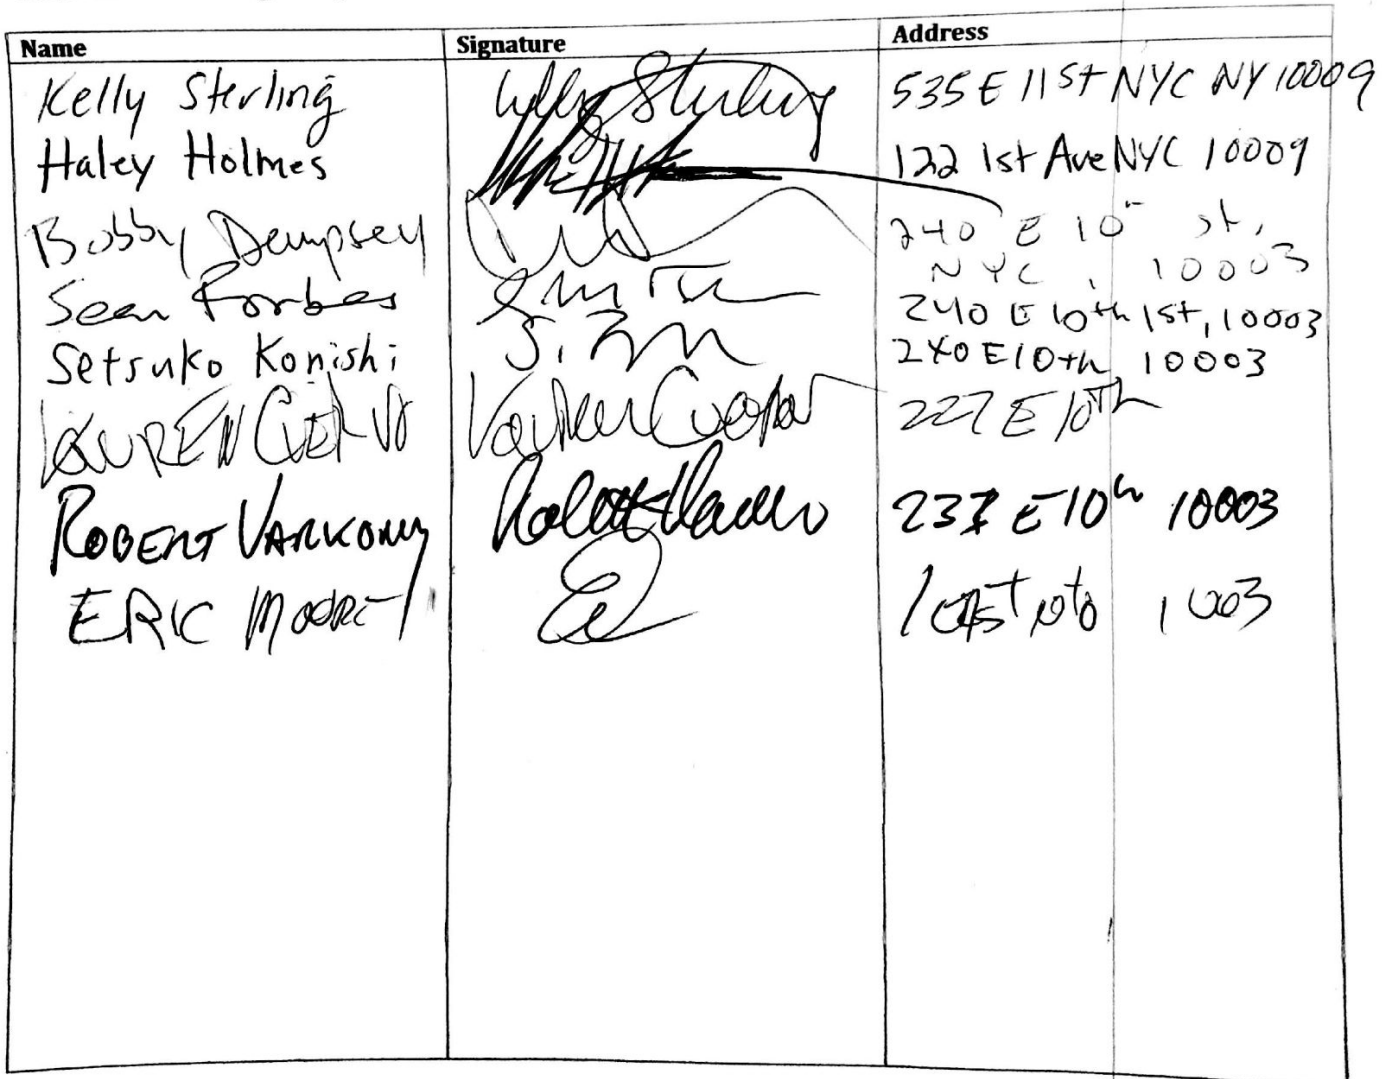 Name Signature Address
Kelly Sterling Kelly Sterling 535 E 11 St NYC NY 10009
Haley Holmes 122 1st Ave NYC 10009
Bobby Dempsey 240 E 10th St,
NYC, 10003
Sean Forbes 240 E 10th 1St, 10003
Setsuko Konishi 240 E 10th 10003
LAUREN Lauren 227 E 10Th
ROBERT VARKONY Robert 237 E 10th 10003
ERIC 1003